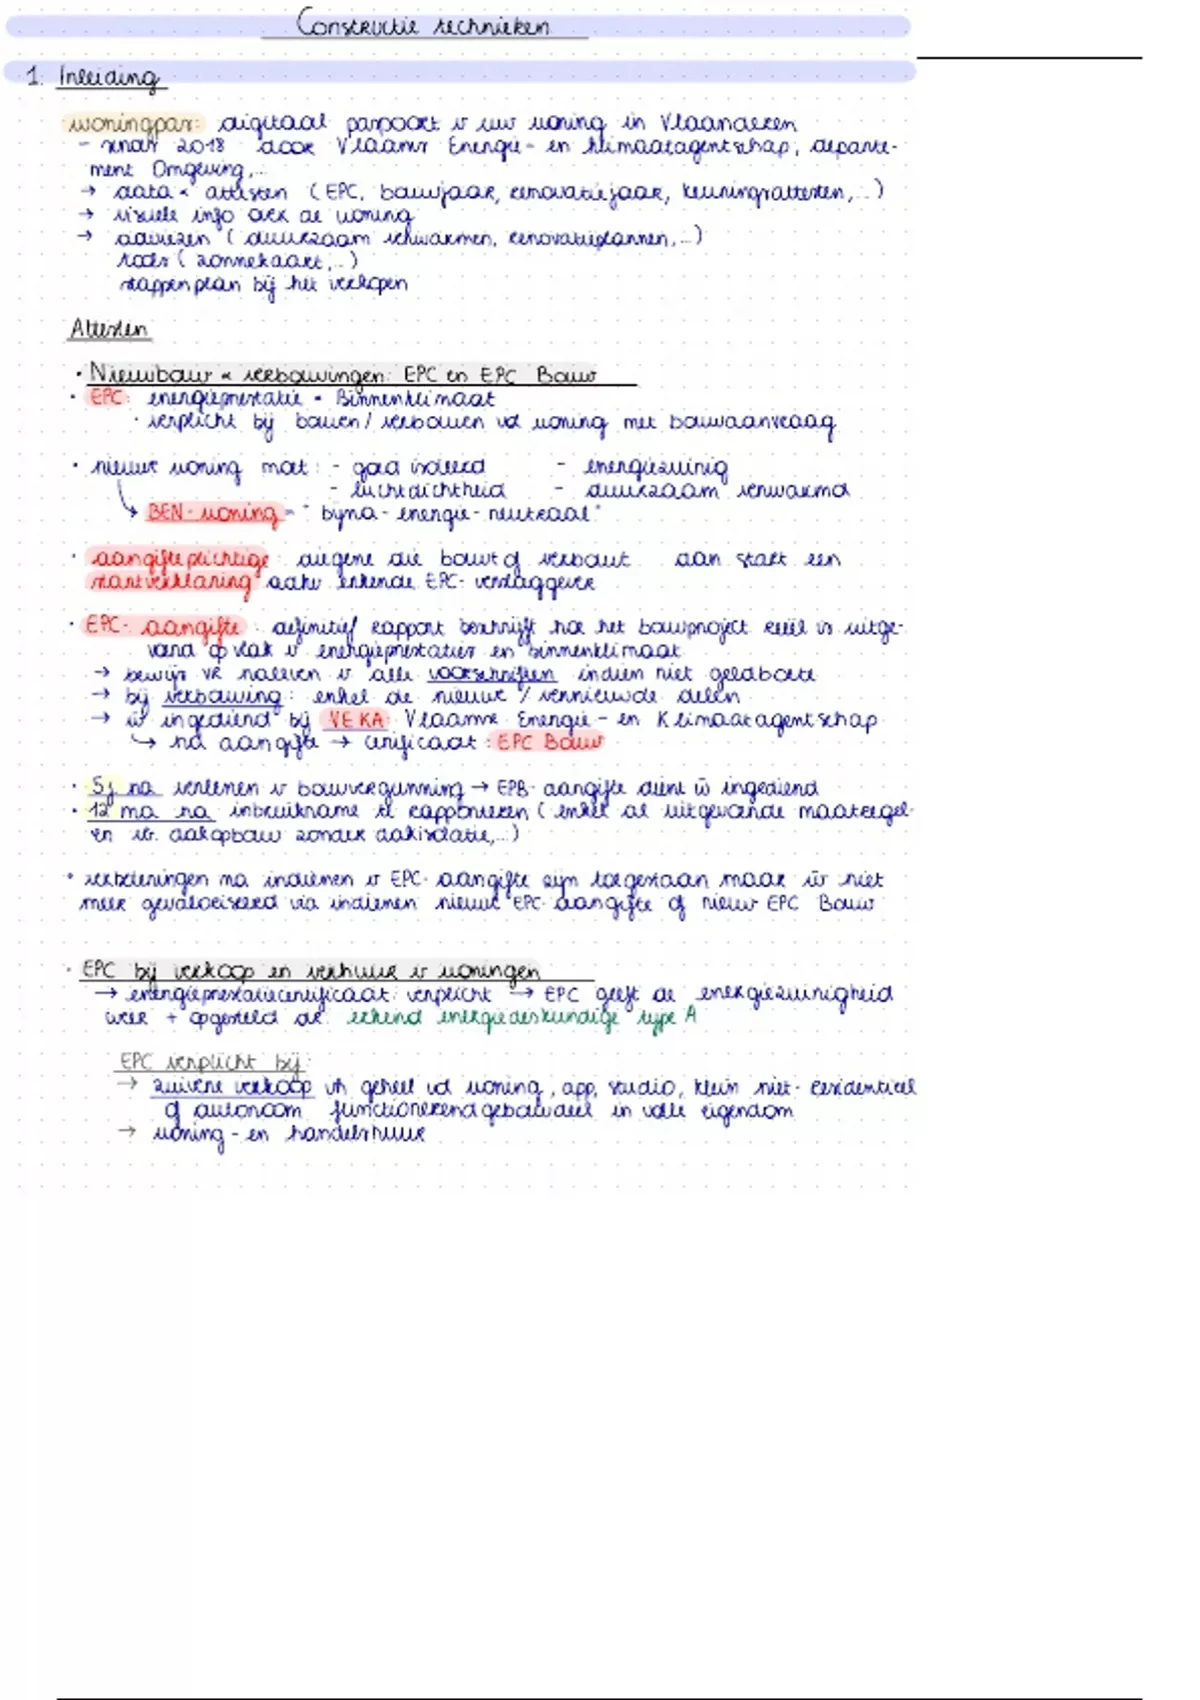 Constructie technieken
1. Inleiding
woningpas: digitaal paspoort v uw woning in Vlaanderen
- sinds 2018 door Vlaams Energie- en klimaatagentschap, departe-
ment Omgeving,...
→ data & attesten (EPC, bouwjaar, renovatiejaar, keuringsattesten,...)
→ visuele info over de woning
→ adviezen (duurzaam verwarmen, renovatieplannen,...)
tools (zonnekaart,...)
stappenplan bij het verkopen
Attesten
• Nieuwbouw & verbouwingen: EPC en EPC Bouw
• EPC: energieprestatie & Binnenklimaat
• verplicht bij bouwen/verbouwen vd woning met bouwaanvraag
• nieuwe woning moet: - goed isoleerd - energiezuinig
- luchtdichtheid - duurzaam verwarmd
↳ BEN-woning = "bijna-energie-neutraal"
• aangifteplichtige: diegene die bouwt of verbouwt aan start een
startverklaring adhv erkende EPC-verslaggever
• EPC-aangifte: definitief rapport beschrijft hoe het bouwproject reëel is uitge-
voerd op vlak v energieprestaties en binnenklimaat
→ bewijs vh naleven v alle voorschriften indien niet geldboete
→ bij verbouwing: enkel de nieuwe / vernieuwde delen
→ w ingediend bij VEKA: Vlaamse Energie- en Klimaatagentschap
↳ na aangifte → certificaat: EPC Bouw
• 5j na verlenen v bouwvergunning → EPB-aangifte dient w ingediend
• 12 ma na inbruikname te rapporteren (enkel de uitgevoerde maatregel-
en vb. dakopbouw zonder dakisolatie,...)
• verbeteringen na indienen v EPC-aangifte zijn toegestaan maar w niet
meer gevaloriseerd via indienen nieuwe EPC-aangifte of nieuw EPC Bouw
• EPC bij verkoop en verhuur v woningen
→ energieprestatiecertificaat: verplicht → EPC geeft de energiezuinigheid
weer + opgesteld dr: erkend energiedeskundige type A
EPC verplicht bij:
→ zuivere verkoop vh geheel vd woning, app, studio, klein niet-residentieel
of autonoom functionerend gebouwdeel in volle eigendom
→ woning- en handelshuur